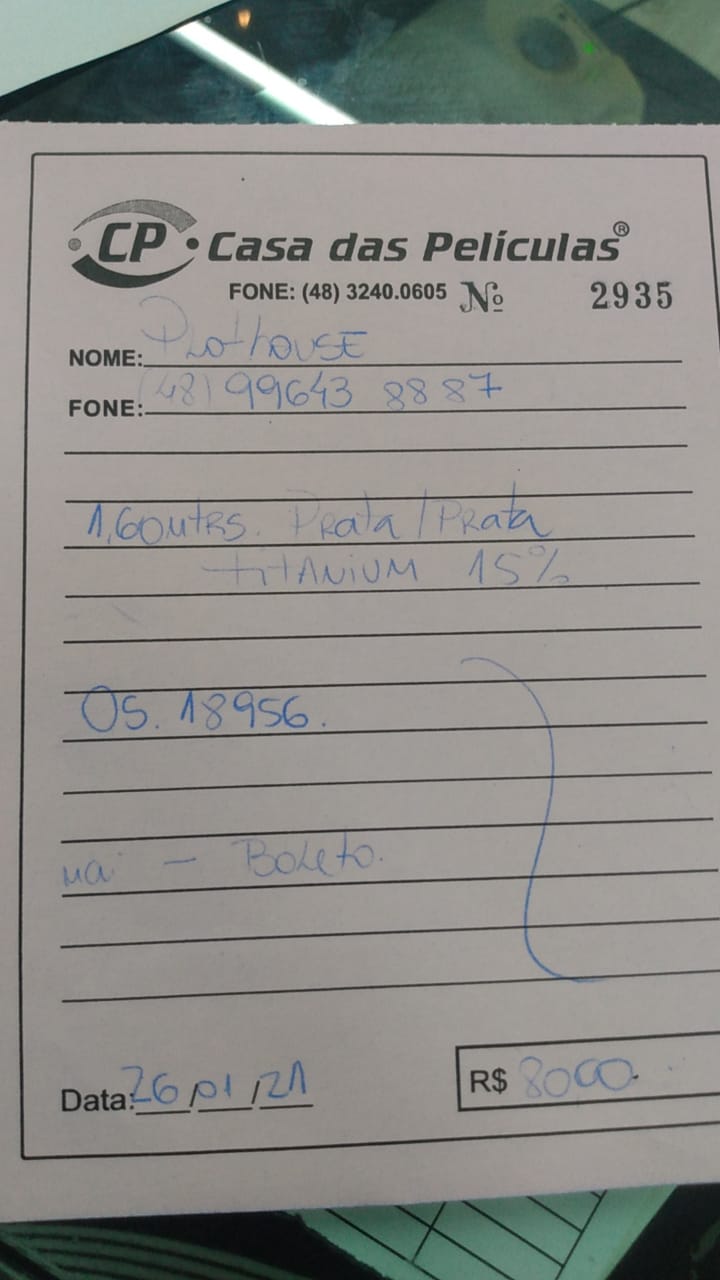 CP • Casa das Películas®
FONE: (48) 3240.0605 Nº 2935
NOME: Plothouse
FONE: (48) 99643 8887
1,60mtrs. Prata/Prata
titANIUM 15%
OS. 18956.
- Boleto.
Data: 26/01/21
R$ 8000.